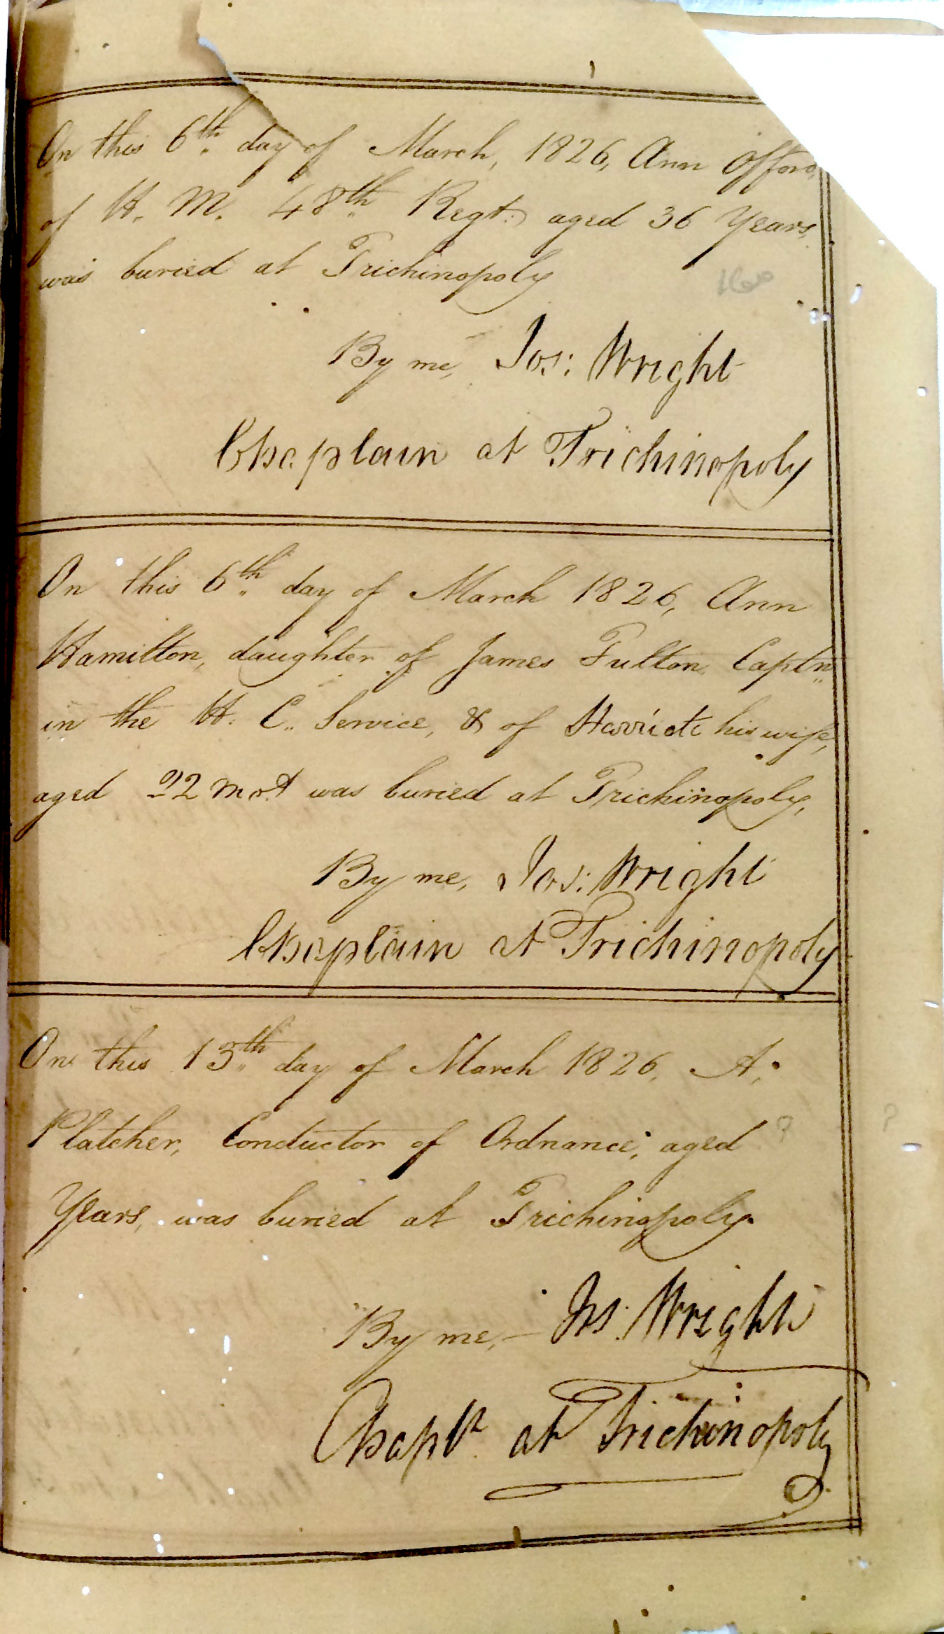 On this 6th day of March, 1826, Ann Offord,
of H. M. 48th Regt: aged 36 Years,
was buried at Trichinopoly
By me, Jos: Wright
Chaplain at Trichinopoly
On this 6th day of March 1826, Ann
Hamilton, daughter of James Fulton, Captn
in the H. C. Service, & of Harriete his wife,
aged 22 mos was buried at Trichinopoly,
By me, Jos: Wright
Chaplain at Trichinopoly
On this 13th day of March 1826, A,
Platcher, Conductor of Ordnance, aged ?
Years, was buried at Trichinopoly.
By me, – Jos: Wright
Chapln at Trichinopoly